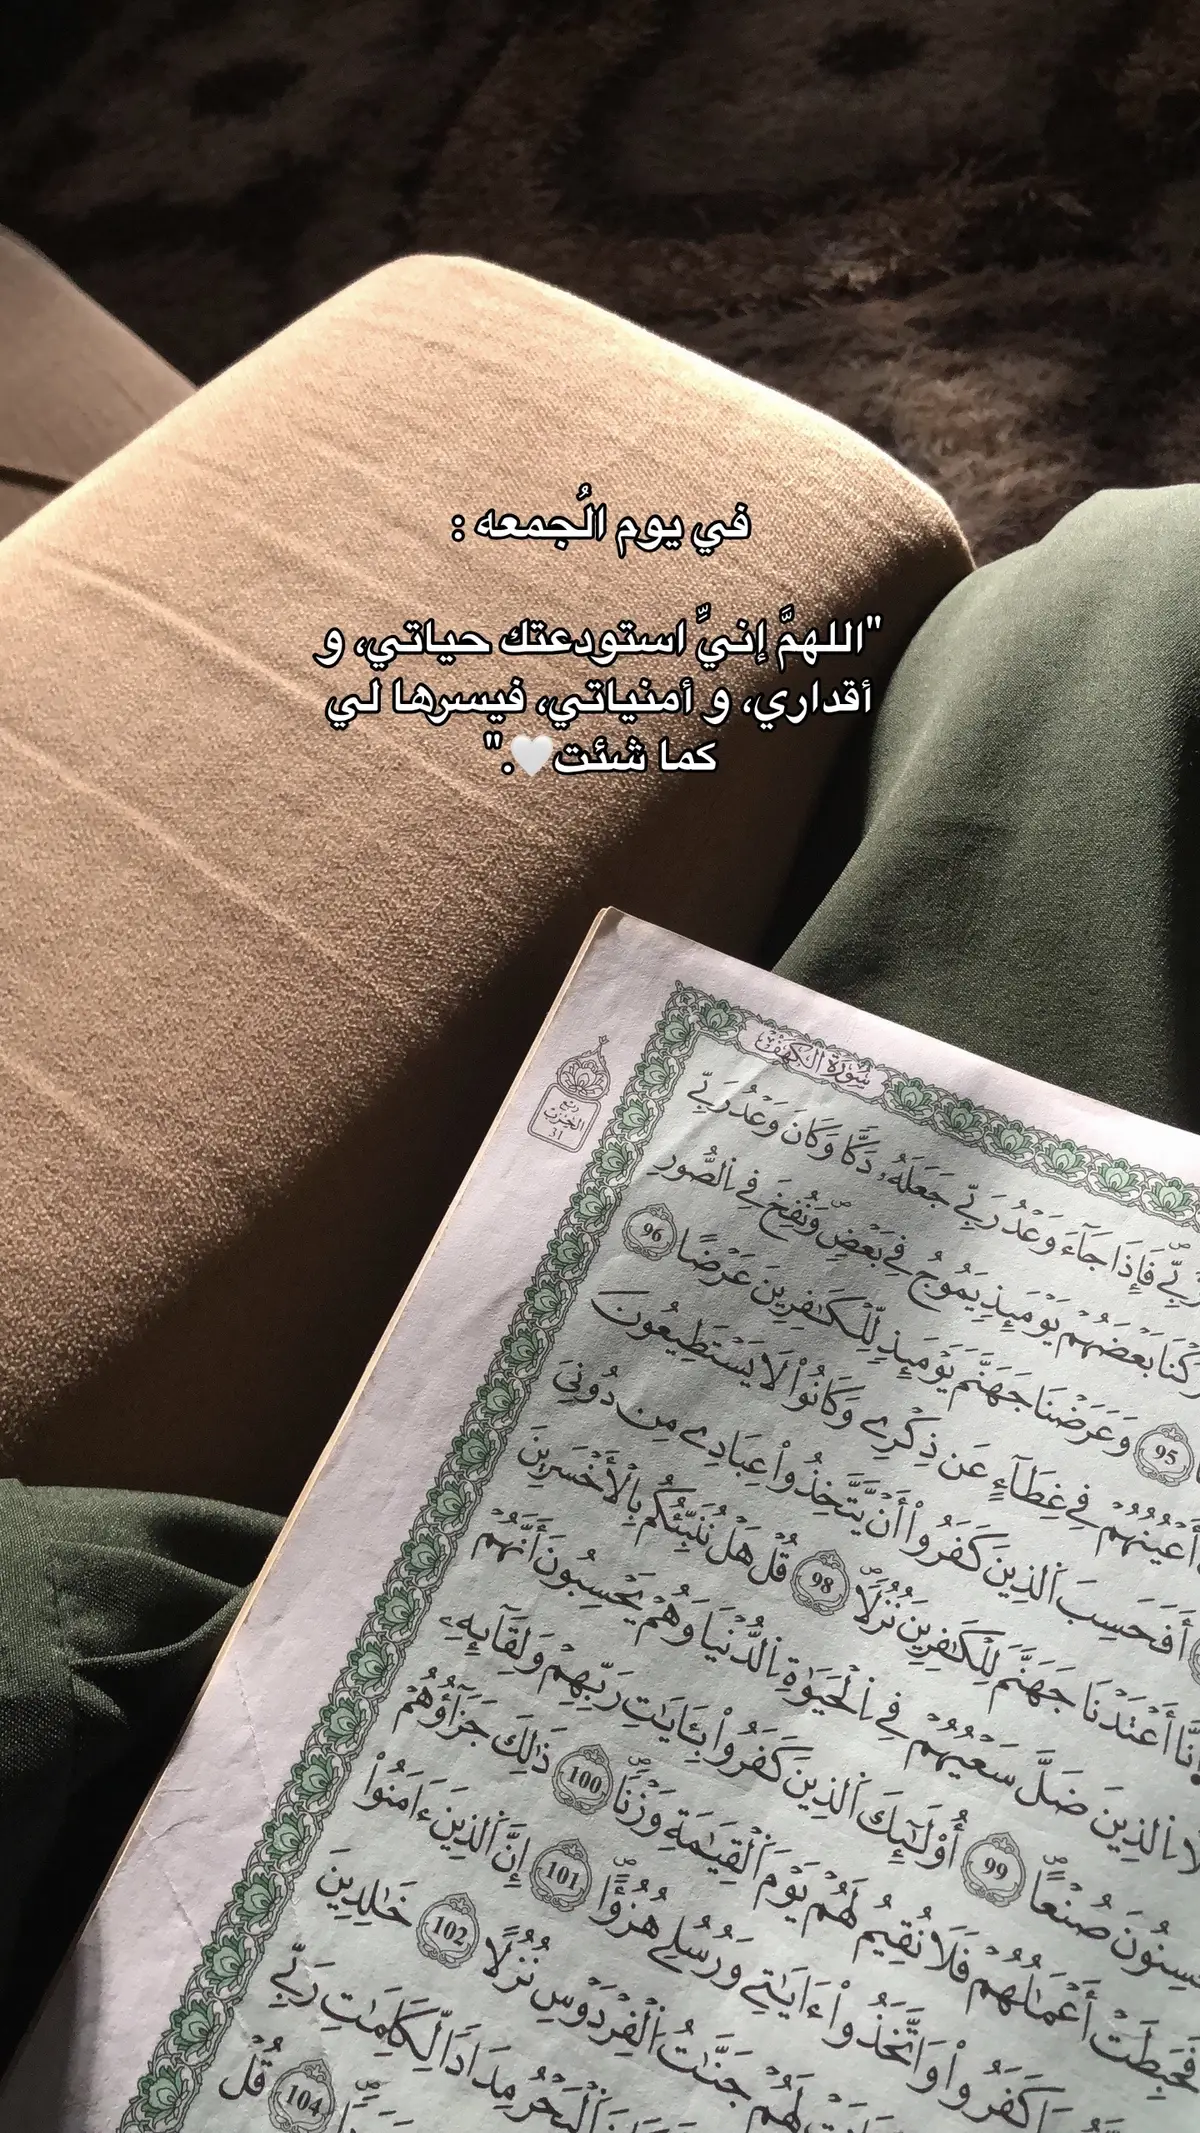 في يوم الُجمعه :
"اللهمَّ إنيِّ استودعتك حياتي، و
أقداري، و أمنياتي، فيسرها لي
كما شئت🤍."
سُورَةُ الكَهْف
ربع
الحزب
31
رَبِّے فَإِذَا جَآءَ وَعْدُ رَبِّے جَعَلَهُۥ دَكّٗا وَكَانَ وَعْدُ رَبِّے
بَعْضَهُمْ يَوْمَئِذٖ يَمُوجُ فِے بَعْضٖ وَنُفِخَ فِے اِ۬لصُّورِ
95 وَعَرَضْنَا جَهَنَّمَ يَوْمَئِذٖ لِّلْكَٰفِرِينَ عَرْضًا 96
أَعْيُنُهُمْ فِے غِطَآءٍ عَن ذِكْرِے وَكَانُواْ لَا يَسْتَطِيعُونَ
أَفَحَسِبَ اَ۬لذِينَ كَفَرُوٓاْ أَنْ يَّتَّخِذُواْ عِبَادِے مِن دُونِيَ
إِنَّآ أَعْتَدْنَا جَهَنَّمَ لِلْكَٰفِرِينَ نُزُلٗا 98 قُلْ هَلْ نُنَبِّئُكُم بِالْأَخْسَرِينَ
اَ۬لذِينَ ضَلَّ سَعْيُهُمْ فِے اِ۬لْحَيَوٰةِ اِ۬لدُّنْيَا وَهُمْ يَحْسِبُونَ أَنَّهُمْ
صُنْعًا 99 أُوْلَٰٓئِكَ اَ۬لذِينَ كَفَرُواْ بِـَٔايَٰتِ رَبِّهِمْ وَلِقَآئِهِۦ
فَحَبِطَتَ اَعْمَٰلُهُمْ فَلَا نُقِيمُ لَهُمْ يَوْمَ اَ۬لْقِيَٰمَةِ وَزْنٗا 100 ذَٰلِكَ جَزَآؤُهُمْ
كَفَرُواْ وَاتَّخَذُوٓاْ ءَايَٰتِے وَرُسُلِے هُزُؤًا 101 إِنَّ اَ۬لذِينَ ءَامَنُواْ
لَهُمْ جَنَّٰتُ اُ۬لْفِرْدَوْسِ نُزُلًا 102 خَٰلِدِينَ
اَ۬لْبَحْرُ مِدَادٗا لِّكَلِمَٰتِ رَبِّے
104 قُلْ